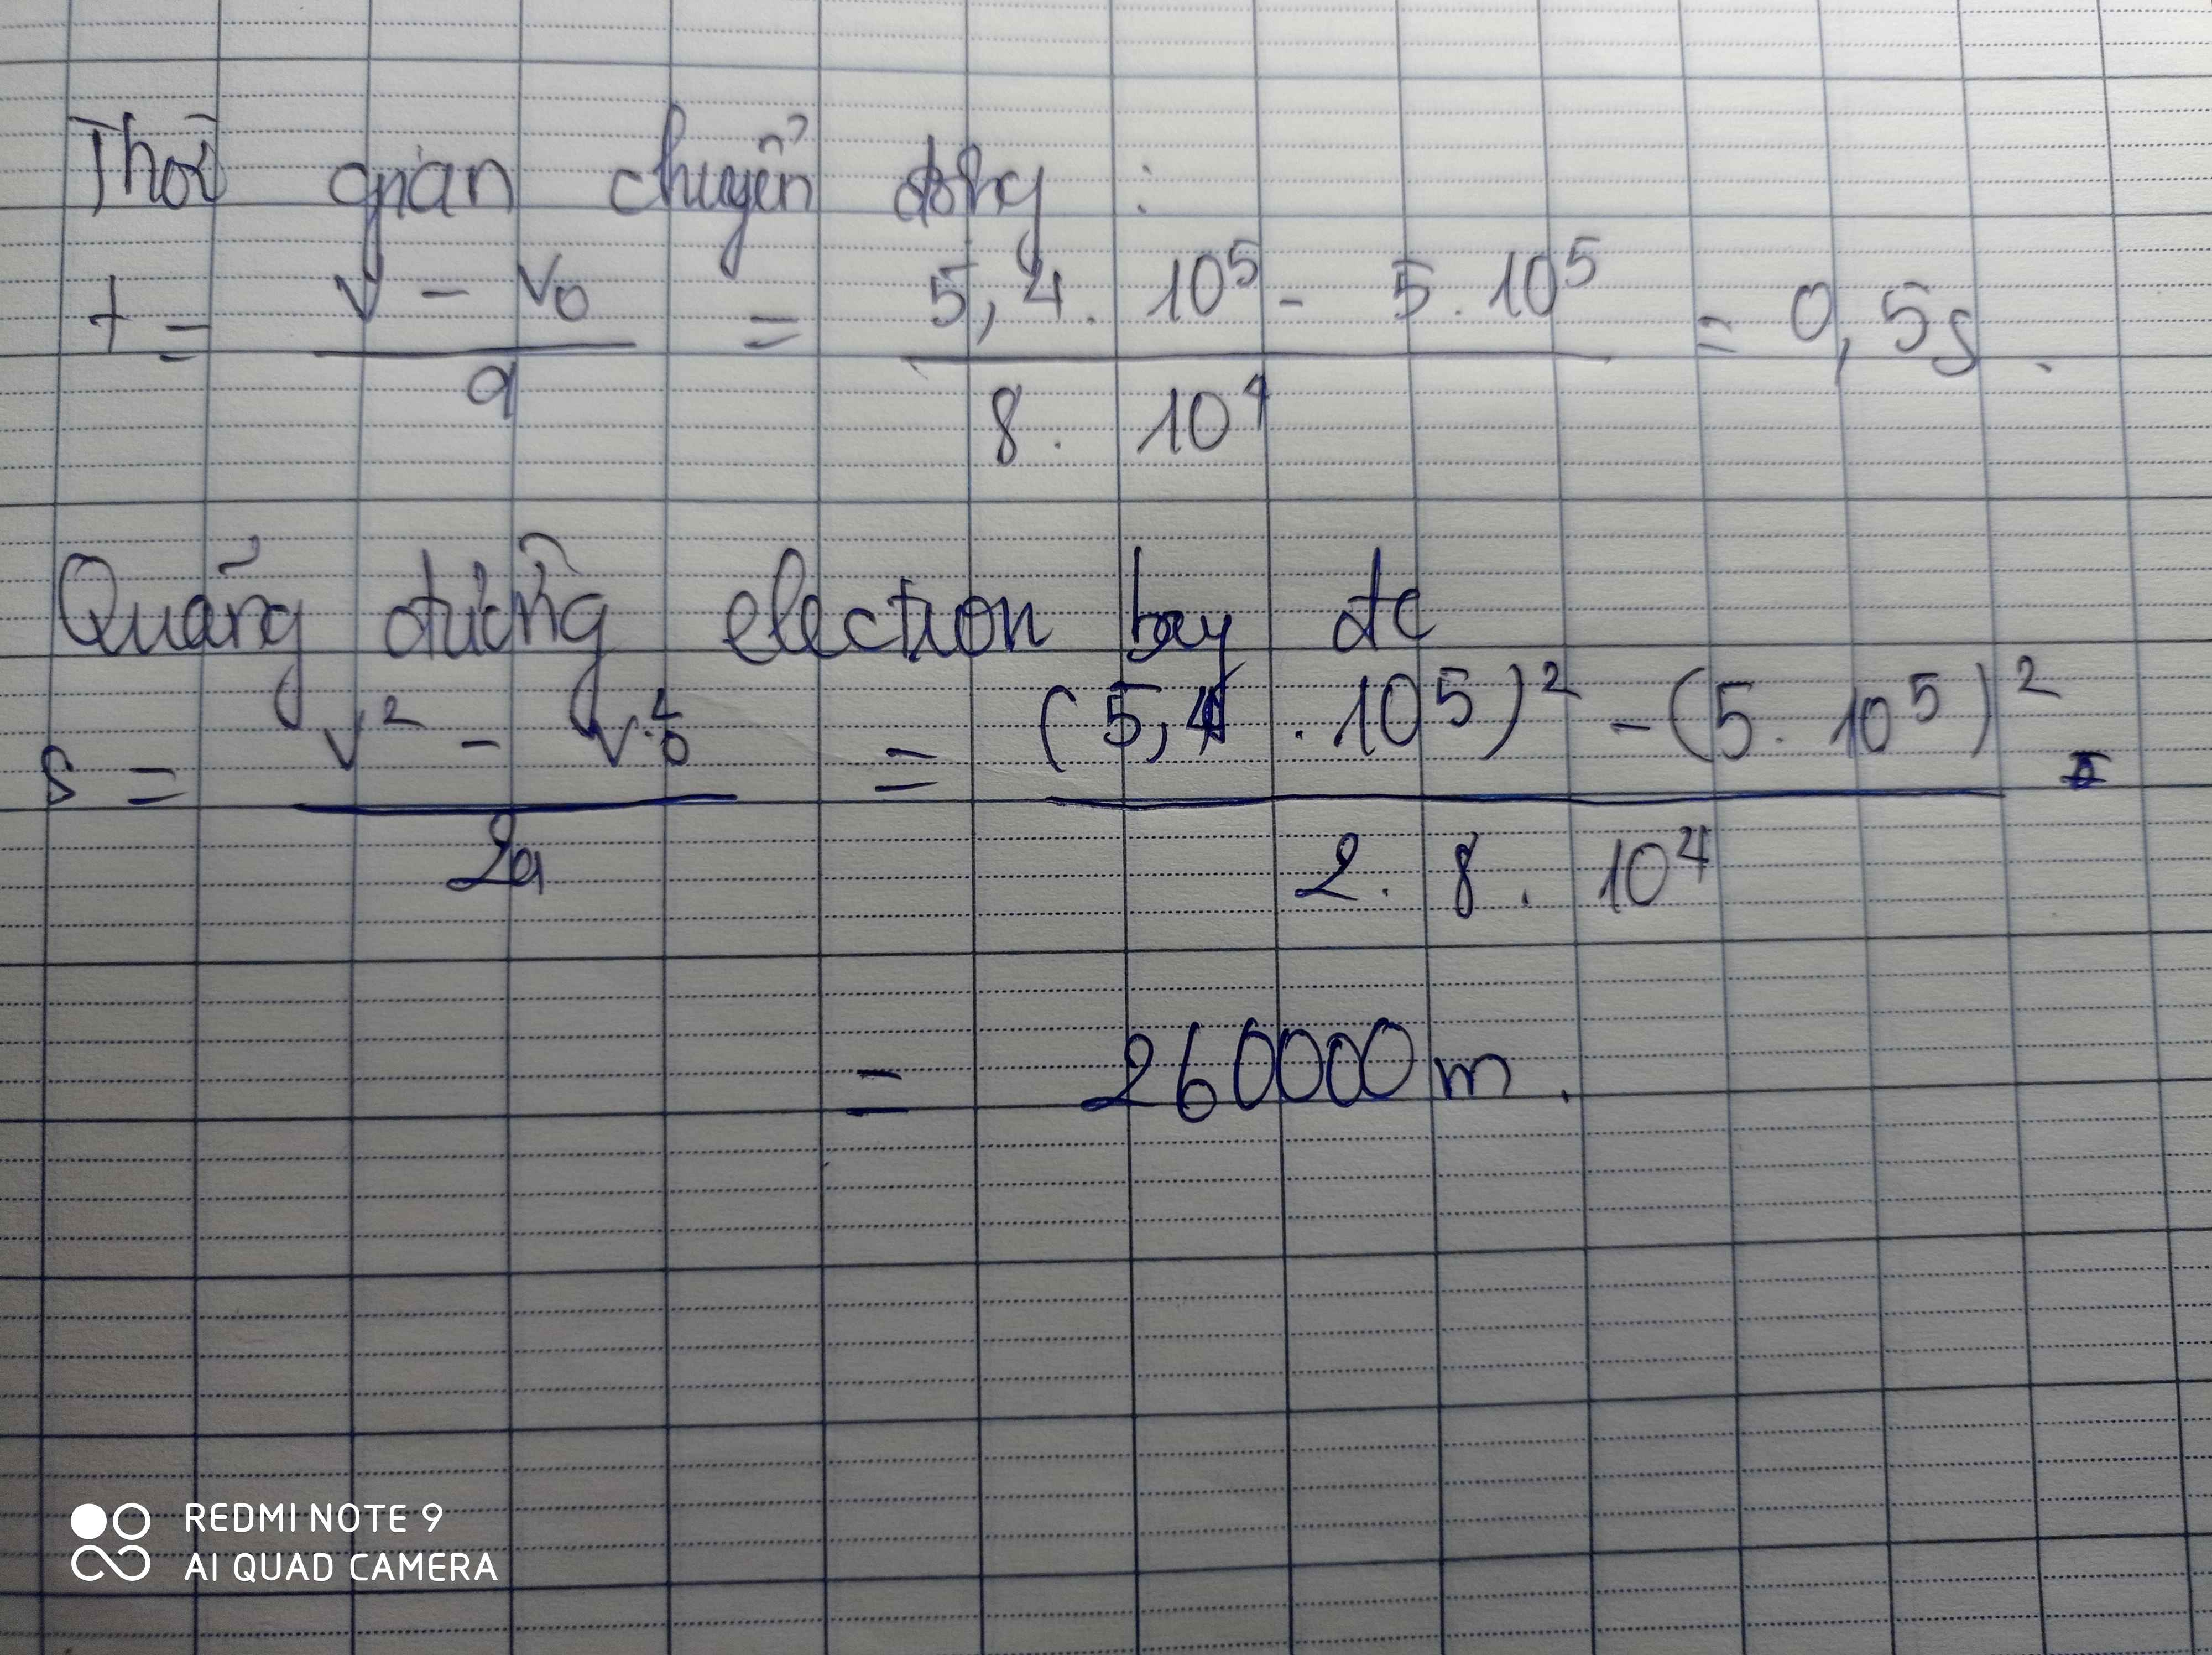 Thời gian chuyển động :
t = (v - v₀) / a = (5,4 . 10⁵ - 5 . 10⁵) / (8 . 10⁴) = 0,5s .
Quãng đường electron bay đc
s = (v² - v₀²) / 2a = ((5,4 . 10⁵)² - (5 . 10⁵)²) / (2 . 8 . 10⁴)
= 260000 m .
REDMI NOTE 9
AI QUAD CAMERA